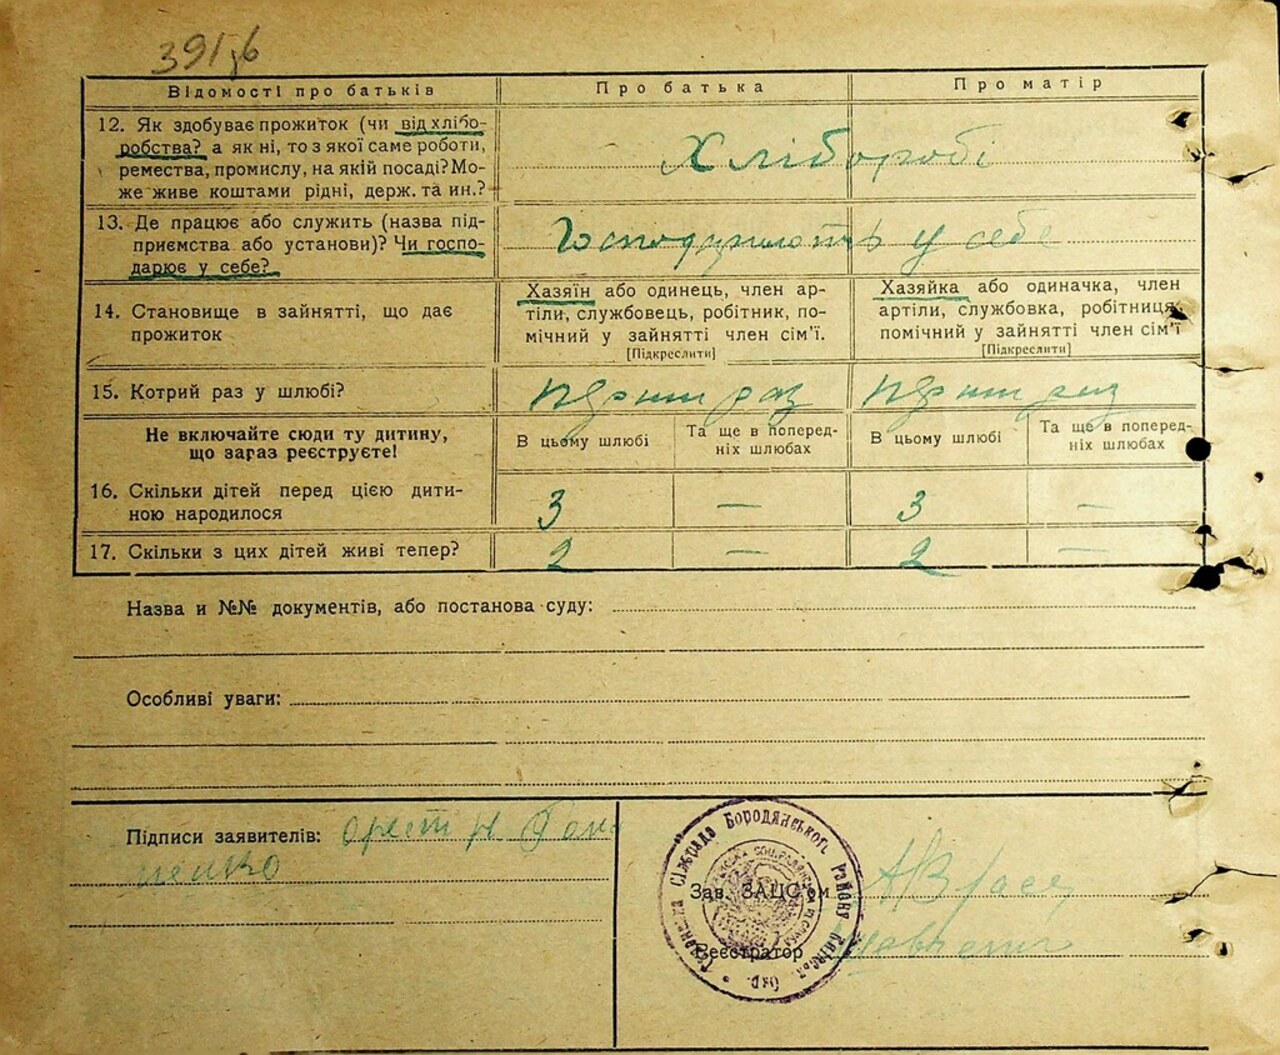 391зб
Відомості про батьків
Про батька
Про матір
12. Як здобуває прожиток (чи від хлібо-
робства? а як ні, то з якої саме роботи,
ремества, промислу, на якій посаді? Мо-
же живе коштами рідні, держ. та ин.?
Хлібороби
13. Де працює або служить (назва під-
приємства або установи)? Чи госпо-
дарює у себе?
у себе
14. Становище в зайнятті, що дає
прожиток
Хазяїн або одинець, член ар-
тілі, службовець, робітник, по-
мічний у зайнятті член сім'ї.
[Підкреслити]
Хазяйка або одиначка, член
артілі, службовка, робітниця,
помічний у зайнятті член сім'ї
[Підкреслити]
15. Котрий раз у шлюбі?
раз
раз
Не включайте сюди ту дитину,
що зараз реєструєте!
В цьому шлюбі
Та ще в поперед-
ніх шлюбах
В цьому шлюбі
Та ще в поперед-
ніх шлюбах
16. Скільки дітей перед цією дити-
ною народилося
3 — 3 —
17. Скільки з цих дітей живі тепер?
2 — 2 —
Назва и №№ документів, або постанова суду:
Особливі уваги:
Підписи заявителів:
Зав. ЗАЦС'ом
Реєстратор
Сільрада Бородянського Району